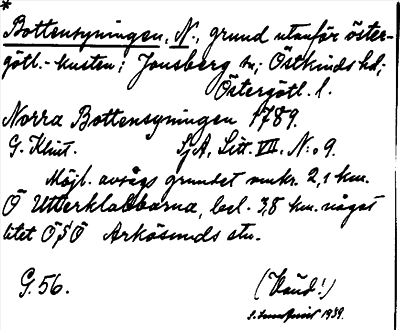 *
Bottensyningen, N., grund utanför öster-
götl.-kusten; Jonsberg sn; Östkinds hd;
Östergötl. l.
Norra Bottensyningen 1789.
G. Klint. SjA, Litt. VII. N:o 9.
Möjl. avsågs grundet omkr. 2,1 km.
Ö Utterklabbarna, bel. 3,8 km. något
litet ÖSÖ Arkösunds stn.
G. 56.
1939.